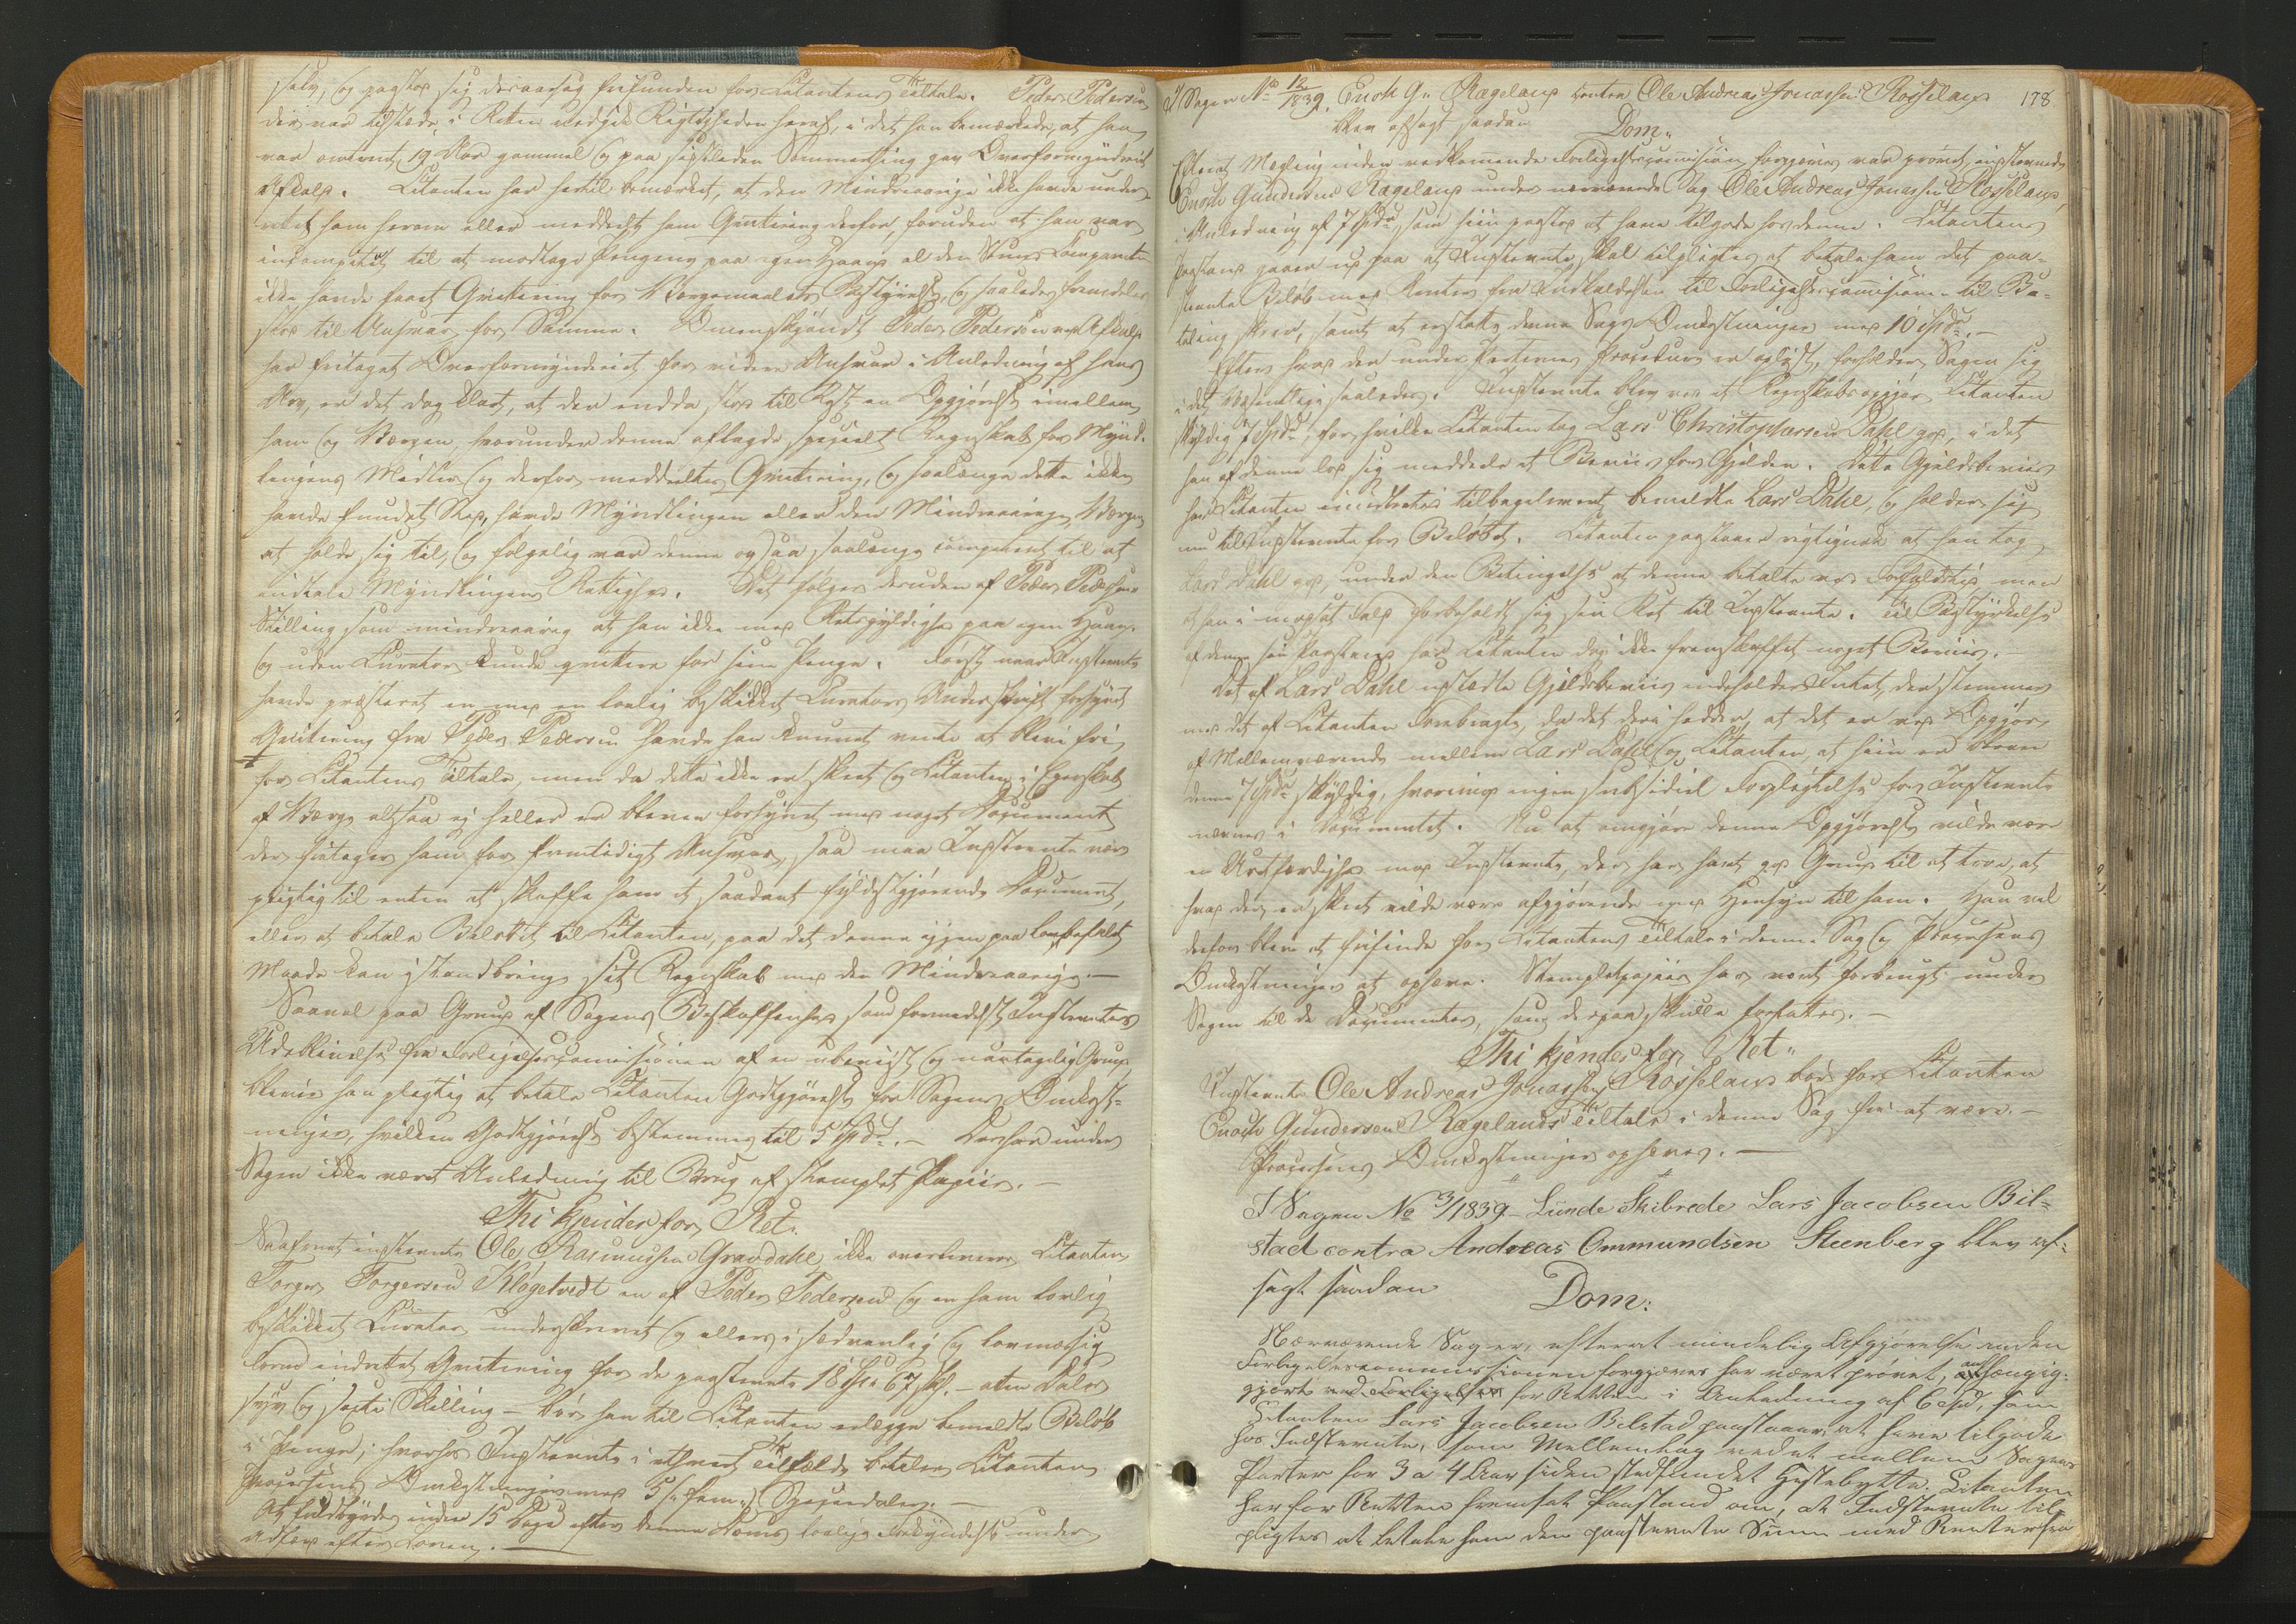 selv, og paastod sig desaarsag frifunden for Citantens Tiltale. Peder Pedersen
der var tilstæde i Retten vedgik Rigtigheden heraf, i det han bemærkede, at han
var omtrent 19 Aar gammel og paa sidstleden Sommerthing gav Overformynderiet
Afkald. Citanten har hertil bemærket, at den Mindreaarige ikke havde under-
rettet ham herom eller meddeelt ham Qvittering derfor, foruden at han var
incompetent til at modtage Pengene paa egen Haand al den Stund Comparenten
ikke havde faaet Qvittering for Værgemaalets Bestyrelse, og saaledes fremdeles
stod til Ansvar for Samme. Omendskjøndt Peder Pedersen ved Afkald
har fritaget Overformynderiet for videre Ansvar i Anledning af hans
Arv, er det dog klart, at der endda stod til Rest en Opgjørelse imellem
ham og Værgen, hvorunder denne aflagde specielt Regnskab for Mynd-
lingens Midler og derfor meddeeltes Qvittering, og saalænge dette ikke
havde fundet Sted, havde Myndlingen eller den Mindreaarige Værgen
at holde sig til, og følgelig var denne ogsaa saalænge competent til at
indtale Myndlingens Rettighed. Det følger desuden af Peder Pedersens
Stilling som mindreaarig at han ikke med Retsgyldighed paa egen Haand
og uden Curator kunde qvittere for sine Penge. Først naar Indstevnte
havde præsteret en med en lovlig beskikket Curators Underskrift forsynet
Qvittering fra Peder Pedersen havde han kunnet vente at blive fri
for Citantens Tiltale, men da dette ikke er skeet og Citanten i Egenskab
af Værge altsaa ej heller er bleven forsynet med noget Document
der fritager ham for fremtidigt Ansvar, saa maa Indstevnte være
pligtig til enten at skaffe ham et saadant fyldestgjørende Document,
eller at betale Beløbet til Citanten, paa det denne igjen paa lovbefalet
Maade kan istandbringe sit Regnskab med den Mindreaarige.—
Saavel paa Grund af Sagens Beskaffenhed som formedelst Indstevntes
Udeblivelse fra Forligelsescommissionen af en ubeviist og uantagelig Grund,
bliver han pligtig at betale Citanten Godtgjørelse for Sagens Omkost-
ninger, hvilken Godtgjørelse bestemmes til 5 Spd.— Der har under
Sagen ikke været Anledning til Brug af stemplet Papiir.—
Thi kjendes for Ret.
Saafremt indstevnte Ole Rasmussen Gravdahl ikke overleverer Citanten
Torger Torgersen Kløgetvedt en af Peder Pedersen og en ham lovlig
beskikket Curator underskrevet og ellers i sædvanlig og lovmæssig
Form indrettet Qvittering for de paastevnte 18 Spd 67 sk.— atten Daler
syv og sexti Skilling — bør han til Citanten erlægge bemeldte Beløb
i Penge, hvorhos Indstevnte i ethvert Tilfælde betaler Citanten
Processens Omkostninger med 5/: fem :/ Speciedaler.—
At fuldbyrdes inden 15 Dage efter denne Doms lovlige Forkyndelse under
Adfærd efter Loven.—
I Sagen No 12/1839. Enok G. Rægeland contra Ole Andreas Jonassen Rosseland 178
blev afsagt saadan Dom
Efterat Mægling inden vedkommende Forligelsescommission forgjæves var prøvet, indstevnede
Enoch Gundersen Rægeland under nærværende Sag Ole Andreas Jonassen Rosseland
i Anledning af 7 Spd, som hiin paastod at have tilgode hos denne. Citantens
Paastand gaaer ud paa at Indstevnte skal tilpligtes at betale ham det paa-
stevnte Beløb med Renter fra Indkaldelsen til Forligelsescommissionen til Be-
taling skeer, samt at erstatte denne Sags Omkostninger med 10 Spd.—
Efter hvad der under Parternes Procedure er oplyst, forholder Sagen sig
i det Væsentlige saaledes. Indstevnte blev ved et Regnskabsopgjør Citanten
skyldig 7 Spd, for hvilke Citanten tog Lars Christophersen Dahl god, i det
han af denne lod sig meddele et Beviis for Gjelden. Dette Gjeldsbeviis
har Citanten imidlertid tilbageleveret bemeldte Lars Dahl, og holder sig
nu til Indstevnte for Beløbet. Citanten paastaaer rigtignok at han tog
Lars Dahl god, under den Betingelse at denne betalte ved Forfaldstid men
at han i modsat Fald forbeholdt sig sin Ret til Indstevnte. Til Bestyrkelse
af denne sin Paastand har Citanten dog ikke fremskaffet noget Beviis.—
Det af Lars Dahl udstedte Gjeldsbeviis indeholder Intet, der stemmer
med det af Citanten Forebragte, da det deri hedder, at det er ved Opgjør
af Mellemværende mellem Lars Dahl og Citanten, at hiin er bleven
denne 7 Spd skyldig, hvorimod ingen subsidiel Forpligtelse for Indstevnte
nævnes i Documentet. Nu at omgjøre denne Opgjørelse vilde være
en Uretfærdighed mod Indstevnte, der har havt god Grund til at troe, at
hvad der er skeet vilde være afgjørende med Hensyn til ham. Han vil
derfor blive at frifinde for Citantens Tiltale i denne Sag og Processens
Omkostninger at ophæve. Stempletpapiir har været forbrugt under
Sagen til de Documenter, som derpaa skulle forfattes.—
Thi kjendes for Ret
Indstevnte Ole Andreas Jonassen Rosseland bør for Citanten
Enoch Gundersen Rægelands Tiltale i denne Sag fri at være.—
Processens Omkostninger ophæves.—
I Sagen No 3/1839— Lunde Skibrede Lars Jacobsen Bil-
stad contra Andreas Ommundsen Steenberg blev af-
sagt saadan Dom:
Nærværende Sag er, efterat mindelig Afgjørelse inden
Forligelsescommissionen forgjæves har været prøvet, anhængig-
gjort ved for Retten i Anledning af 6 Spd, som
Citanten Lars Jacobsen Bilstad paastaaer at have tilgode
hos Indstevnte, som Mellemlag ved et mellem Sagens
Parter for 3 a 4 Aar siden stedfundet Hestebytte. Citanten
har for Retten fremsat Paastand om, at Indstevnte til-
pligtes at betale ham den paastevnte Sum med Renter fra